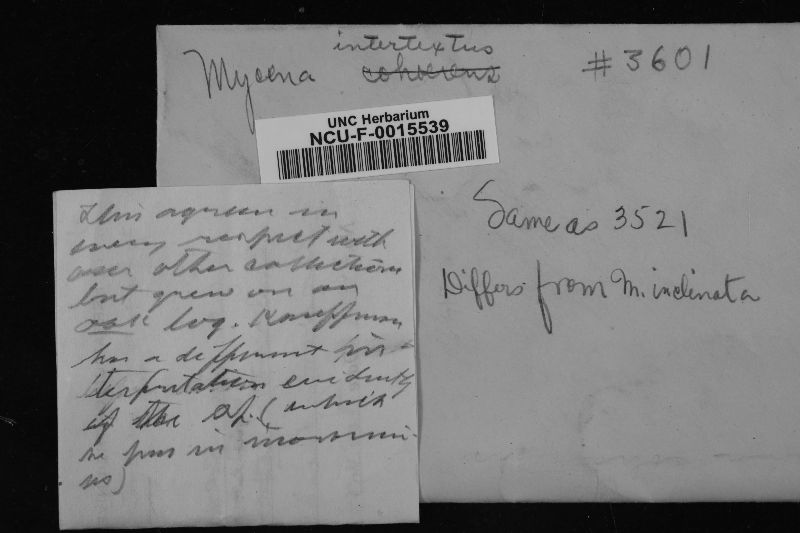 intertextus
Mycena cohaerens #3601
UNC Herbarium
NCU-F-0015539
Same as 3521
Differs from M. inclinata
This agrees in
every respect with
our other collections
but grew on an
oak log. Kauffman
has a different in-
terpretation evidently
of the sp. (which
he puts in